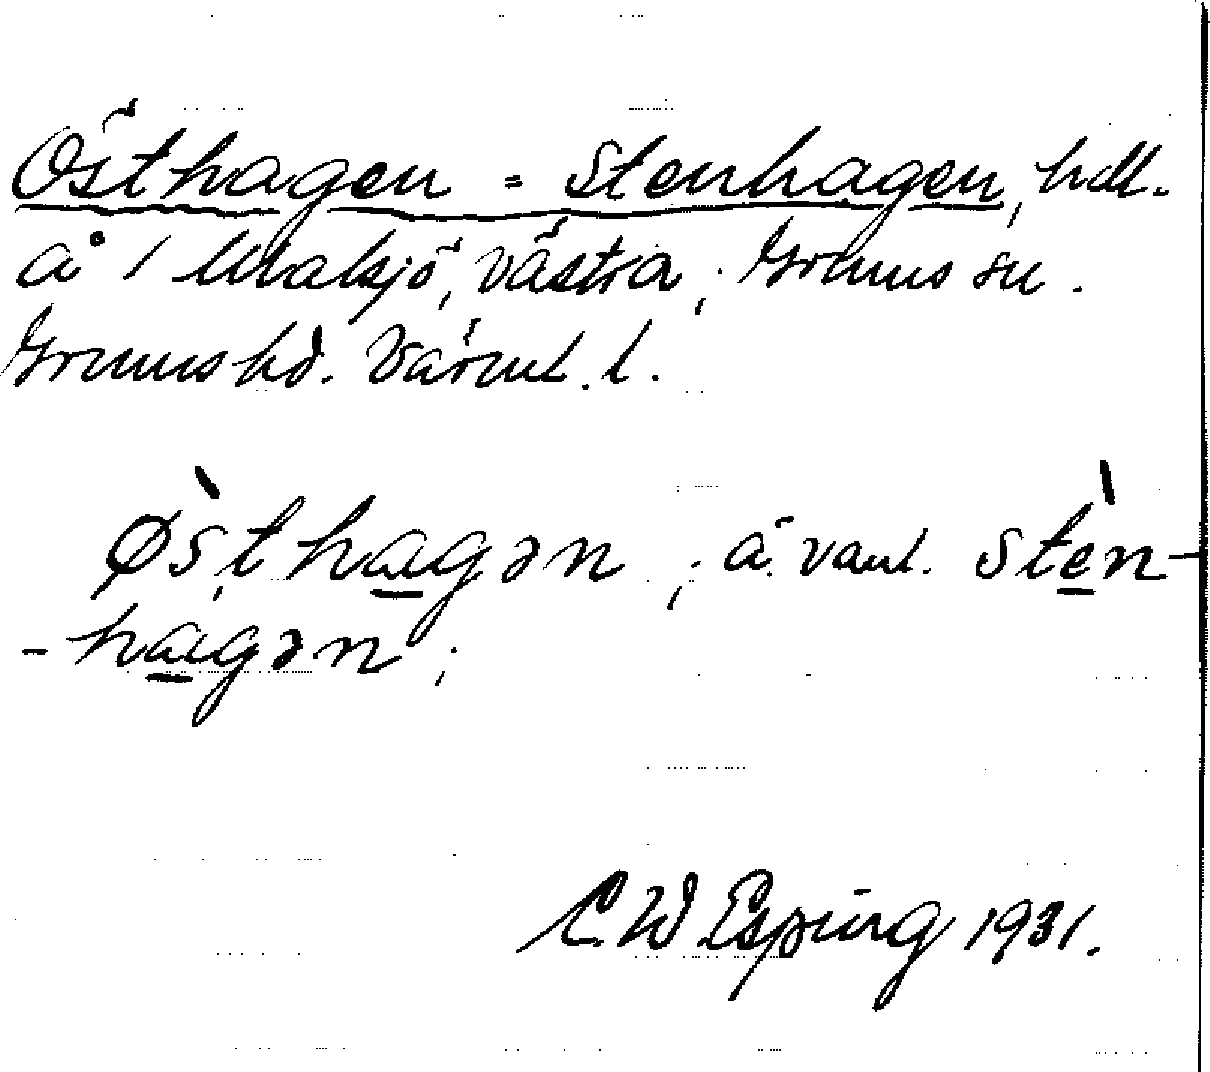 Östhagen = Stenhagen, hdl.
å 1 Malsjö, västra; Grums sn.
Grums hd. Värml. l.
Østhagən; ä. vanl. Stèn-
-hagən;
C. W Esping 1931.